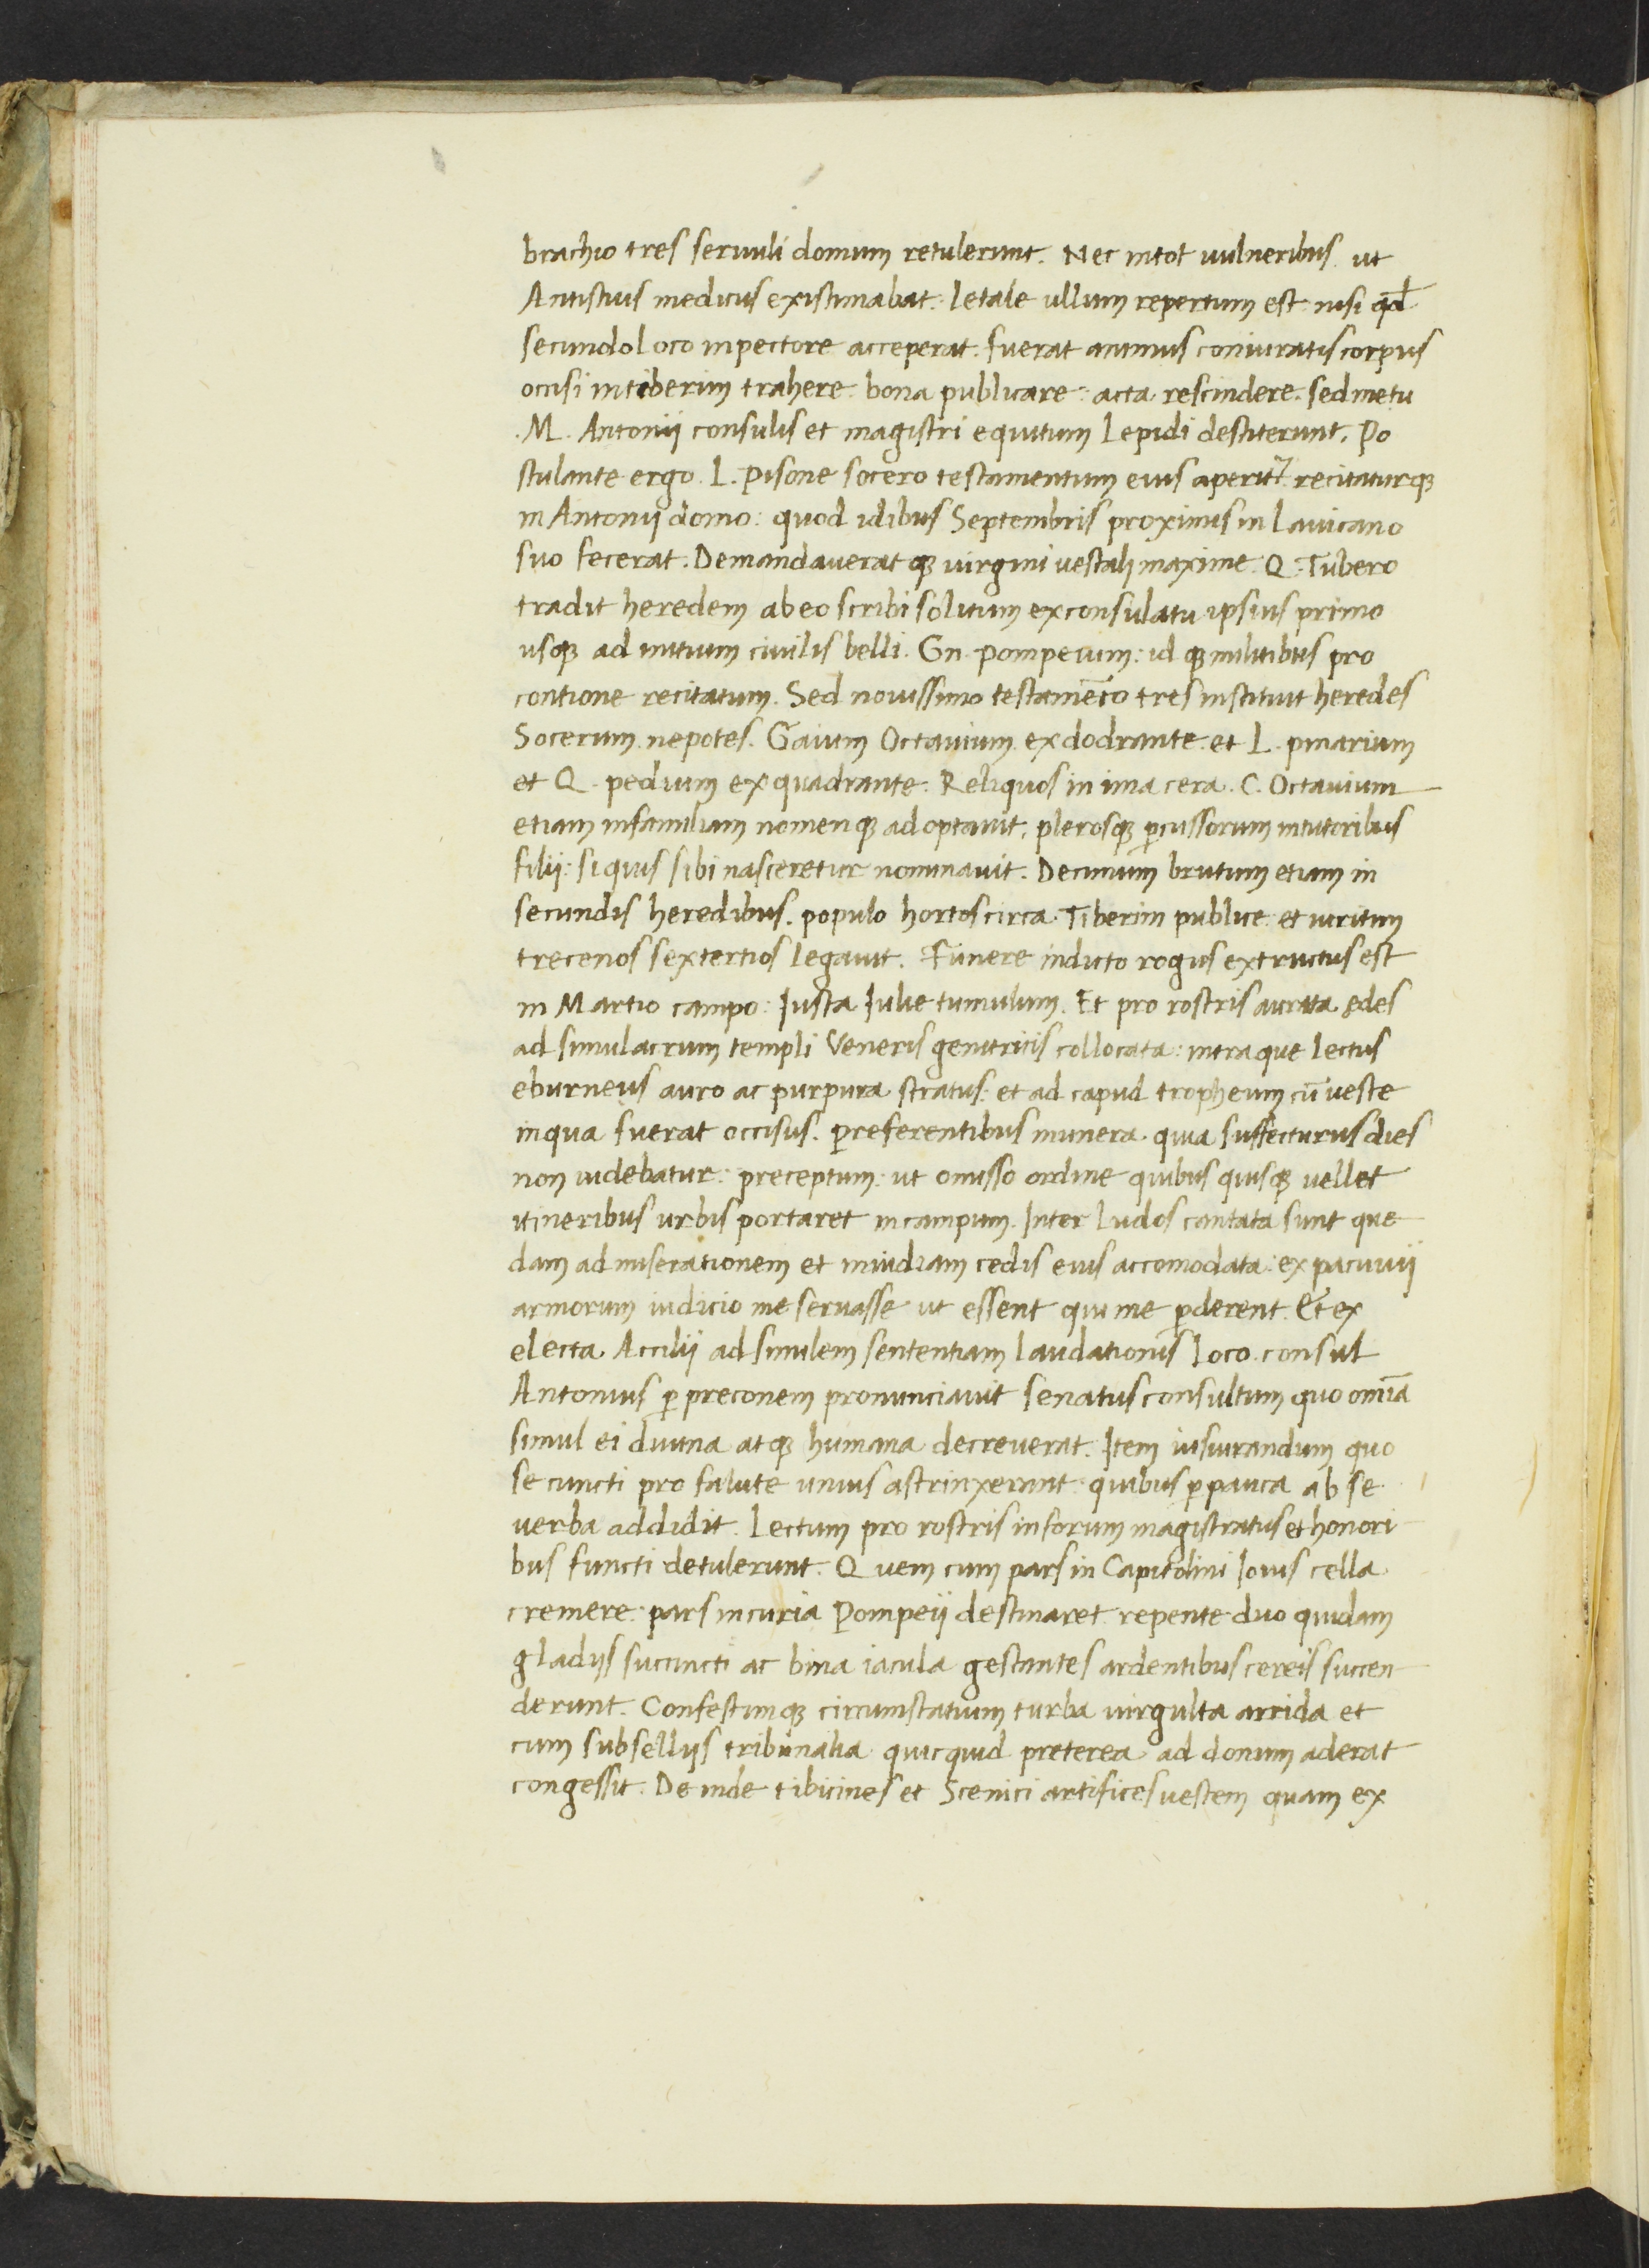 brachio tres servuli domum retulerunt. Nec in tot vulneribus ut
Antistius medicus existimabat: letale ullum repertum est nisi qd̄
secundo loco in pectore acceperat. fuerat animus coniuratis corpus
occisi in tiberim trahere: bona publicare: acta rescindere. sed metu
.M. Antonij consulis et magistri equitum Lepidi destiterunt. Po
stulante ergo. L. Pisone socero testamentum eius aperit᷑ recitaturqꝫ
in Antonij domo: quod idibus Septembris proximis in Lauicano
suo fecerat. Demandaueratqꝫ uirgini uestali maxime. Q. Tubero
tradit heredem ab eo scribi solitum ex consulatu ipsius primo
usqꝫ ad initium ciuilis belli. Gn. Pompeium: idqꝫ militibus pro
contione recitatum. Sed nouissimo testamēto tres instituit heredes
Socerum nepotes. Gaium Octauium ex dodrante: et L. pinarium
et Q. pedium ex quadrante. Reliquos in ima cera. C. Octauium
etiam in familiam nomenqꝫ adoptauit. plerosqꝫ ꝑcussorum in tutoribus
filij: si quis sibi nasceretur nominauit. Decimum brutum etiam in
secundis heredibus. populo hortos circa Tiberim publice: et uiritim
trecenos sextertios legauit. Funere indicto rogus extructus est
in Martio campo: Iusta Iulie tumulum. Et pro rostris aurata edes
ad simulacrum templi Veneris genitricis collocata: intraque lectus
eburneus auro ac purpura stratus: et ad capud tropheum cū ueste
in qua fuerat occisus. Preferentibus munera. quia suffecturus dies
non uidebatur: preceptum: ut omisso ordine quibus quisqꝫ uellet
itineribus urbis portaret in campum. Inter ludos cantata sunt que
dam ad miserationem et inuidiam cedis eius accomodata: ex pacuuij
armorum iudicio me seruasse ut essent qui me ꝑderent. Et ex
electa Accilij ad similem sententiam laudationis loco consul
Antonius ꝑ preconem pronunciauit senatus consultum quo omīa
simul ei diuina atqꝫ humana decreuerat. Item iusiurandum quo
se cuncti pro salute unius astrinxerant: quibus ꝑpauca ab se
uerba addidit. lectum pro rostris in forum magistratus et honori
bus functi detulerunt. Quem cum pars in Capitolini Iouis cella
cremere: pars in curia Pompeij destinaret repente duo quidam
gladijs succincti ac bina iacula gestantes ardentibus cereis succen
derunt. Confestimqꝫ circumstatium turba uirgulta arrida et
cum subsellijs tribunalia quicquid preterea ad donum aderat
congessit. Deinde tibicines et Scenici artifices uestem quam ex